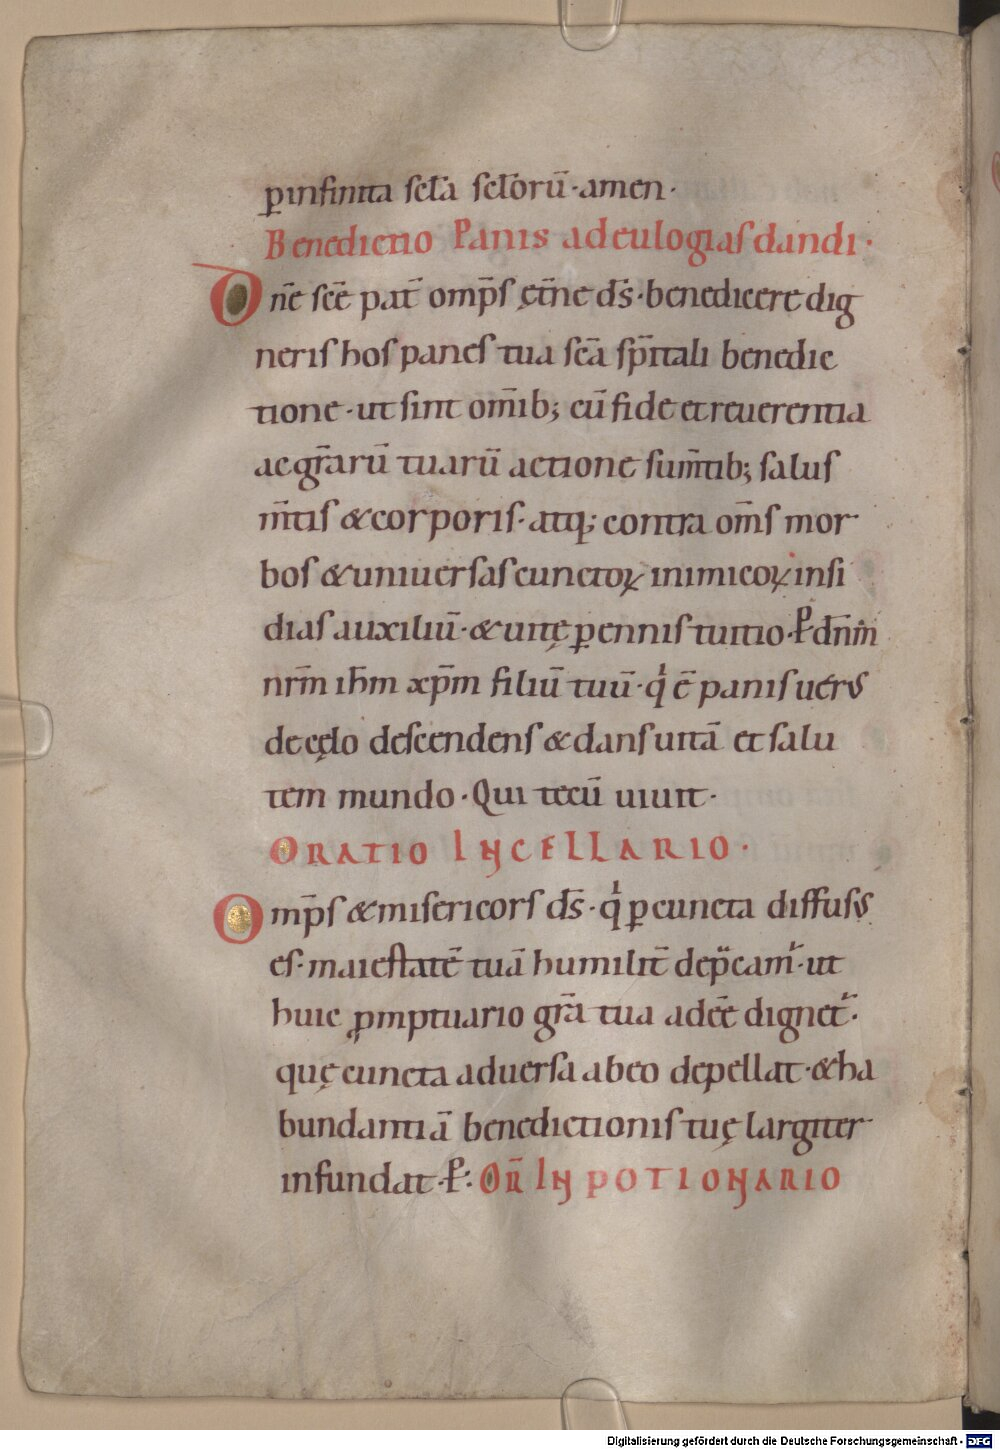 ꝑ infinita scl̄a scl̄orū·amen·
Benedictio Panis ad eulogias dandi·
Dn̄e scē pat̄ omp̄s ęt̄ne ds̄·benedicere dig
neris hos panes tua scā sp̄itali benedic
tione·ut sint om̄ib; cū fide et reuerentia
ac gr̄arū tuarū actione sum̄tib; salus
m̄tis & corporis·atq; contra om̄s mor
bos & uniuersas cunctoꝝ inimicoꝝ insi
dias auxiliū·& uitę ꝑennis tuitio·P̄ dn̄m
nr̄m ih̄m xp̄m filiū tuū·qi ē panis uerus
de cęlo descendens & dans uitā et salu
tem mundo·Qui tecū uiuit·
ORATIO IN CELLARIO·
Omp̄s & misericors ds̄·qi ꝑ cuncta diffusus
es·maiestatē tuā humilit̄ dep̄cam̄·ut
huic ꝓmptuario gr̄a tua adēē dignet̄·
quę cuncta aduersa ab eo depellat·& ha
bundantiā benedictionis tuę largiter
infundat·P̄: OR̄ IN POTIONARIO
Digitalisierung gefördert durch die Deutsche Forschungsgemeinschaft - DFG